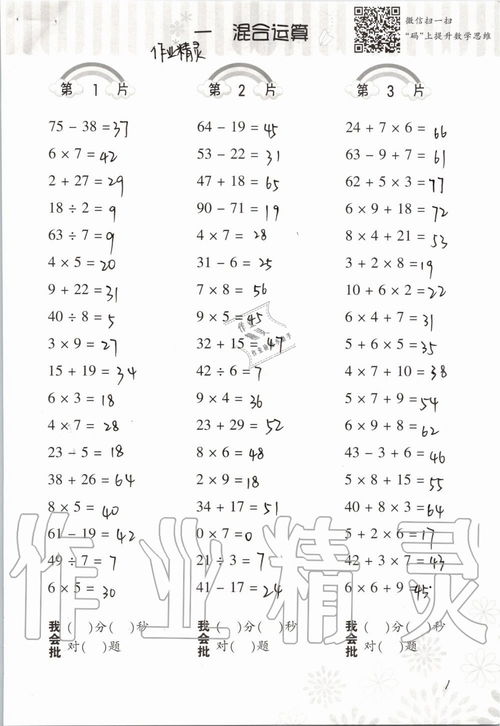 微信扫一扫
“码”上提升数学思维
一 混合运算
作业精灵
第 1 片
75 - 38 = 37
6 × 7 = 42
2 + 27 = 29
18 ÷ 2 = 9
63 ÷ 7 = 9
4 × 5 = 20
9 + 22 = 31
40 ÷ 8 = 5
3 × 9 = 27
15 + 19 = 34
6 × 3 = 18
4 × 7 = 28
23 - 5 = 18
38 + 26 = 64
8 × 5 = 40
61 - 19 = 42
49 ÷ 7 = 7
6 × 5 = 30
我会批
( )分( )秒
对( )题
第 2 片
64 - 19 = 45
53 - 22 = 31
47 + 18 = 65
90 - 71 = 19
4 × 7 = 28
31 - 6 = 25
7 × 8 = 56
9 × 5 = 45
32 + 15 = 47
42 ÷ 6 = 7
9 × 4 = 36
23 + 29 = 52
8 × 6 = 48
2 × 9 = 18
34 + 17 = 51
0 × 7 = 0
21 ÷ 3 = 7
41 - 17 = 24
我会批
( )分( )秒
对( )题
第 3 片
24 + 7 × 6 = 66
63 - 9 + 7 = 61
62 + 5 × 3 = 77
6 × 9 + 18 = 72
8 × 4 + 21 = 53
3 + 2 × 8 = 19
10 + 6 × 2 = 22
6 × 4 + 7 = 31
5 × 6 + 5 = 35
4 × 7 + 10 = 38
5 × 7 + 9 = 54
6 × 9 + 8 = 62
43 - 3 + 6 = 46
5 × 8 + 15 = 55
40 + 8 × 3 = 64
5 + 2 × 6 = 17
42 + 3 × 7 = 43
6 × 6 + 9 = 45
我会批
( )分( )秒
对( )题
作业精灵
1